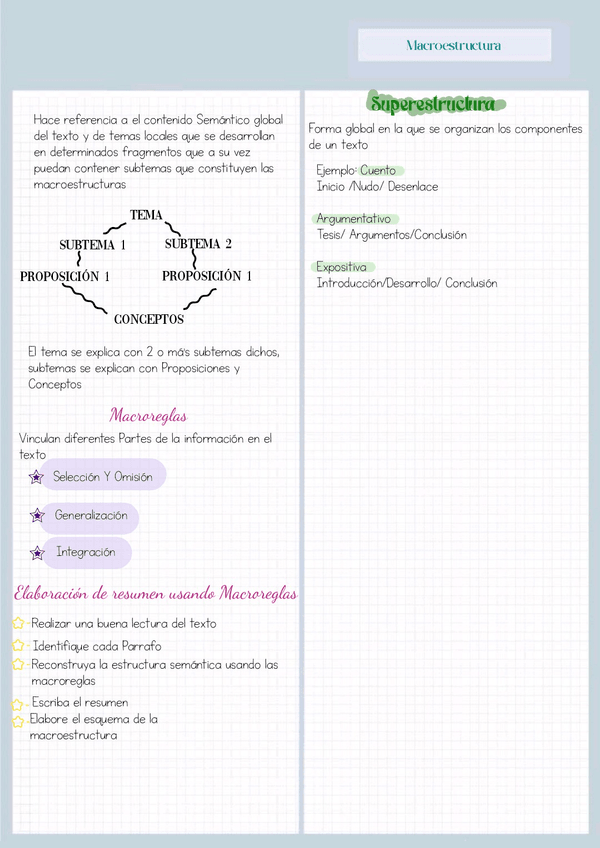 Macroestructura
Hace referencia a el contenido Semántico global
del texto y de temas locales que se desarrollan
en determinados fragmentos que a su vez
puedan contener subtemas que constituyen las
macroestructuras
TEMA
SUBTEMA 1
SUBTEMA 2
PROPOSICIÓN 1
PROPOSICIÓN 1
CONCEPTOS
El tema se explica con 2 o má's subtemas dichos,
subtemas se explican con Proposiciones y
Conceptos
Macroreglas
Vinculan diferentes Partes de la información en el
texto
Selección Y Omisión
Generalización
Integración
Elaboración de resumen usando Macroreglas
- Realizar una buena lectura del texto
- Identifique cada Parrafo
- Reconstruya la estructura semántica usando las
macroreglas
- Escriba el resumen
- Elabore el esquema de la
macroestructura
Superestructura
Forma global en la que se organizan los componentes
de un texto
Ejemplo: Cuento
Inicio /Nudo/ Desenlace
Argumentativo
Tesis/ Argumentos/Conclusión
Expositiva
Introducción/Desarrollo/ Conclusión